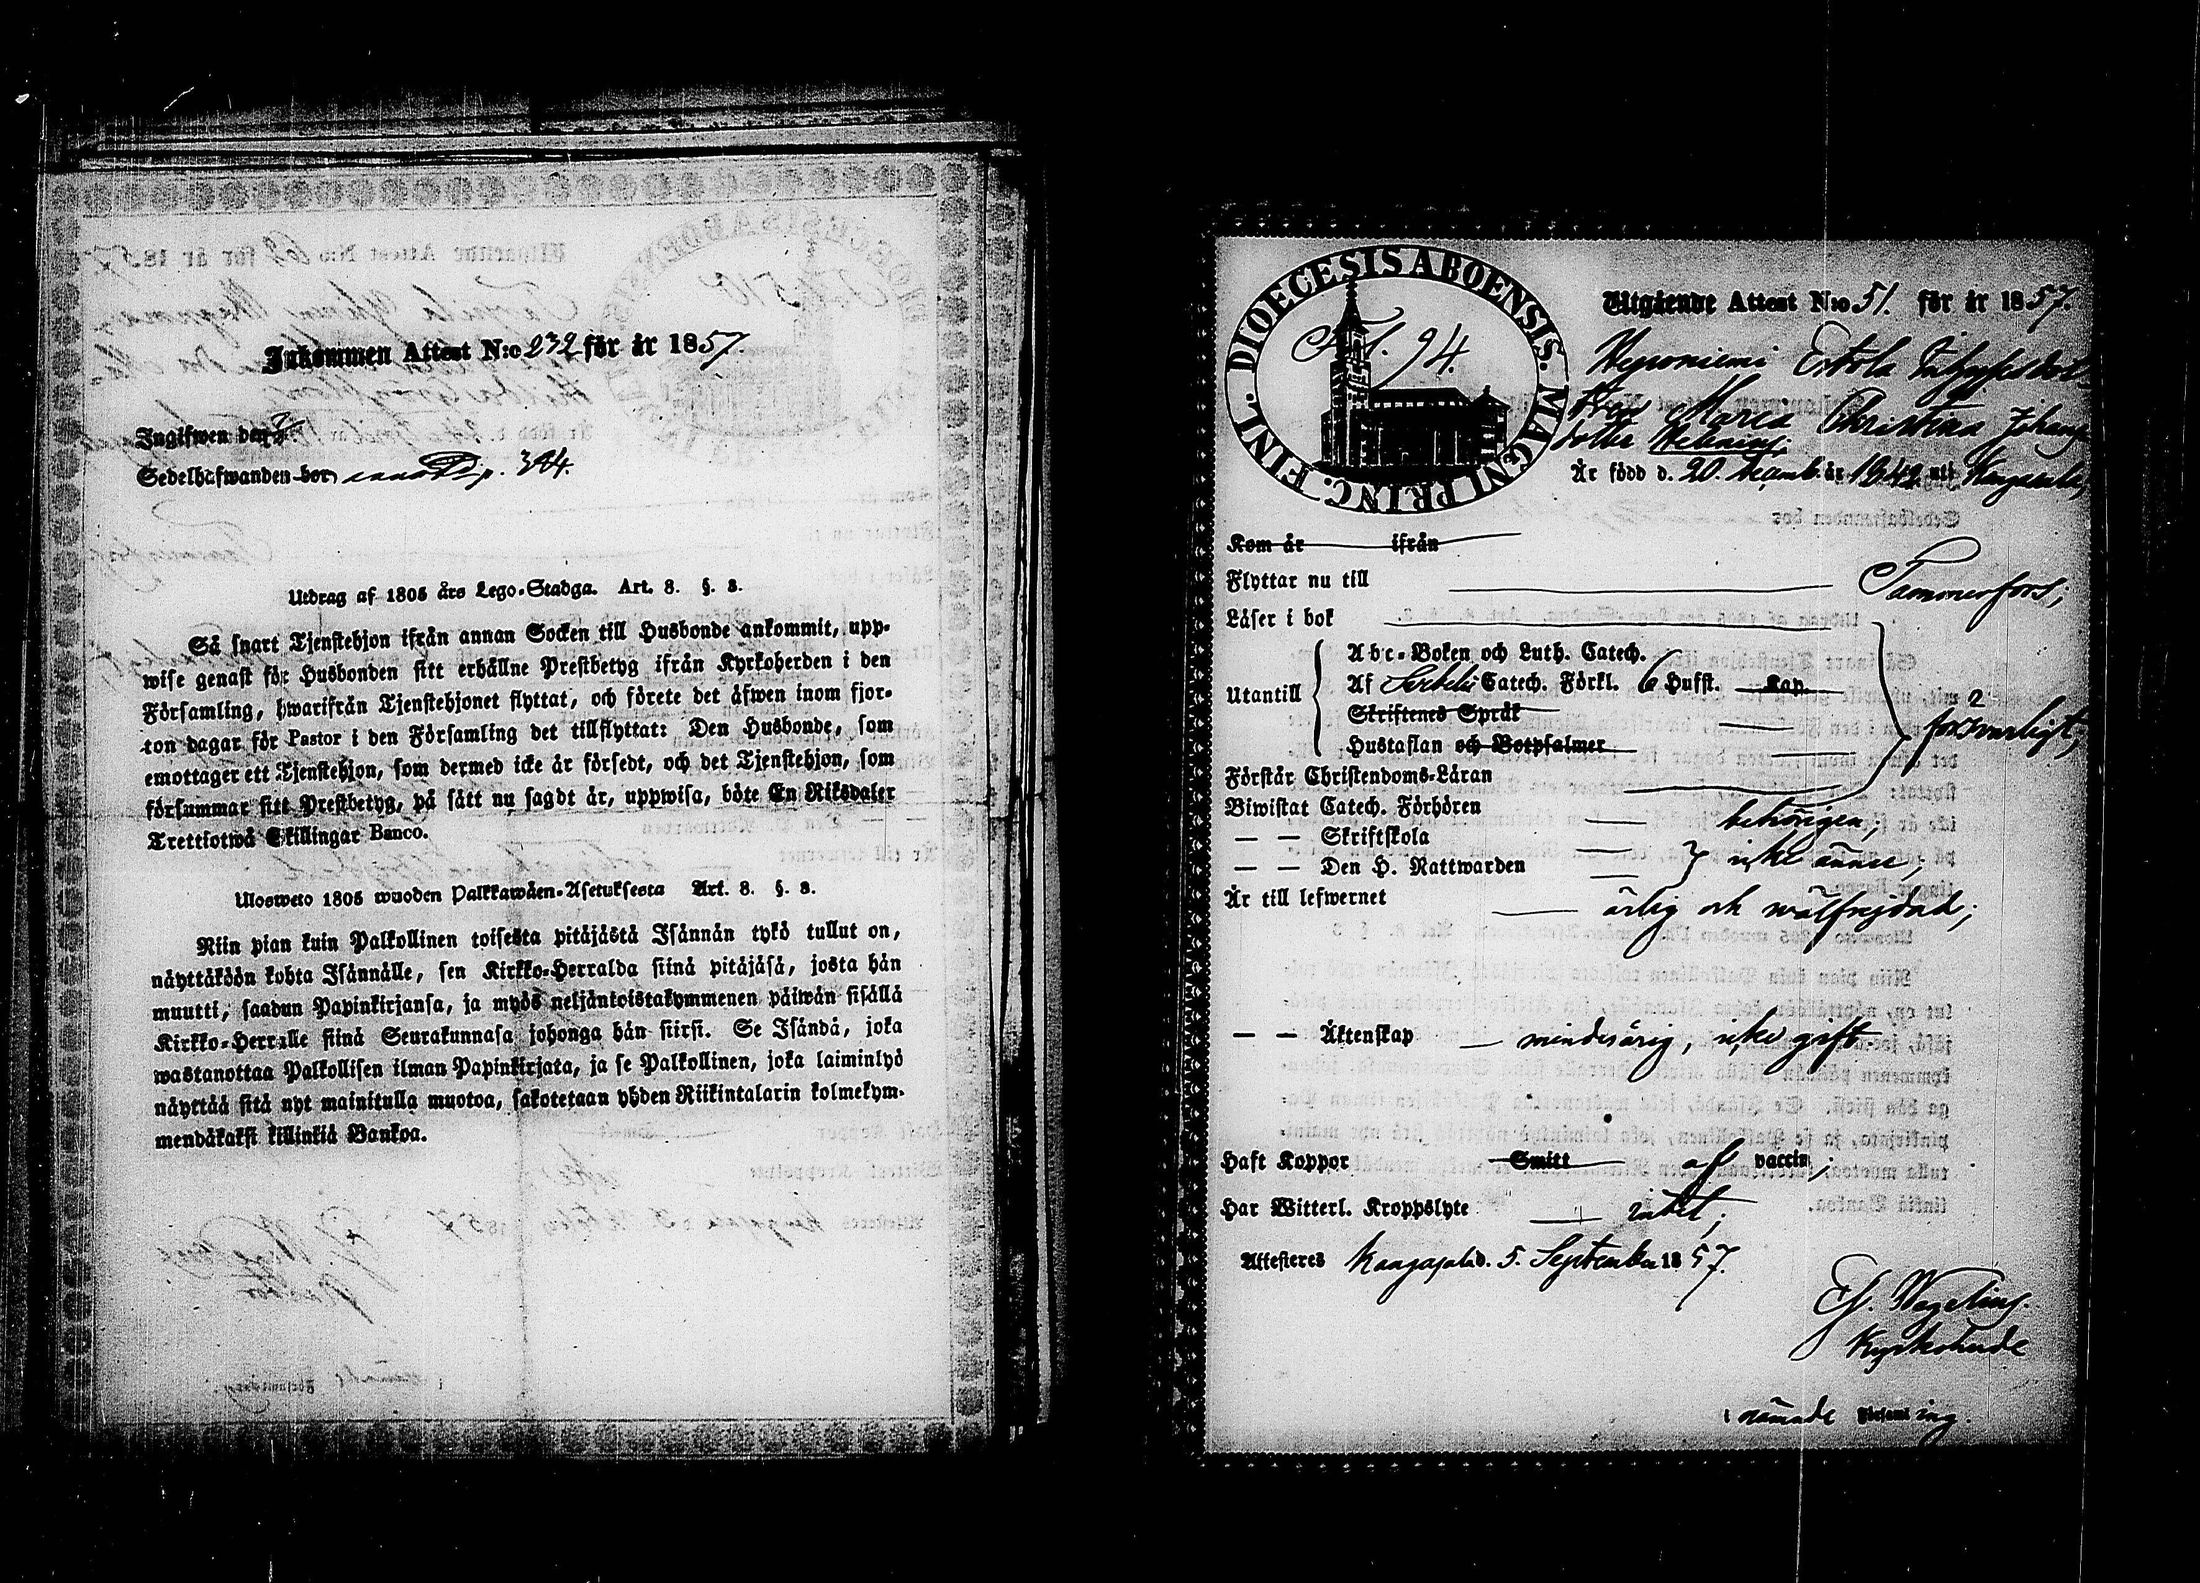 Inkommen Attest N:o 232 för år 1857.
Ingifwen den
Sedelhafwanden bor p. 384.
Utdrag af 1805 års Lego-Stadga. Art. 8. §. 3.
Så snart Tjenstehjon ifrån annan Socken till Husbonde ankommit, upp-
wise genast för Husbonden sitt erhållne Prestbetyg ifrån Kyrkoherden i den
Församling, hwarifrån Tjenstehjonet flyttat, och förete det äfwen inom fjor-
ton dagar för Pastor i den Församling det tillflyttat: Den Husbonde, som
emottager ett Tjenstehjon, som dermed icke är försedt, och det Tjenstehjon, som
försummar sitt Prestbetyg, på sätt nu sagdt är, uppwisa, böte En Riksdaler
Trettiotwå Skillingar Banco.
Ulosweto 1805 wuoden Palkkawäen-Asetuksesta Art. 8. §. 3.
Niin pian kuin Palkollinen toisesta pitäjästä Isännän tykö tullut on,
näyttäköön kohta Isännälle, sen Kirkko-Herralda siinä pitäjäsä, josta hän
muutti, saadun Papinkirjansa, ja myös neljäntoistakymmenen päiwän sisällä
Kirkko-Herralle siinä Seurakunnasa johonga hän siirsi. Se Isändä, joka
wastanottaa Palkollisen ilman Papinkirjata, ja se Palkollinen, joka laiminlyö
näyttää sitä nyt mainitulla muotoa, sakotetaan yhden Riikintalarin kolmekym-
mendäkaksi killinkiä Bankoa.
DIOECESIS ABOENSIS. MAGNI PRINC. FINL.
Fol. 94.
Utgående Attest N:o 51. för år 1857.
Heponiemi Eskola
Maria Christina Johans
dotter
Är född d. 20. Decemb. år 1842 uti Kangasala,
Kom år ifrån
Flyttar nu till Tammerfors;
Läser i bok
Utantill
Abc-Boken och Luth. Catech.
Af Svebelii Catech. Förkl. 6 Hufst. Kap.
Skriftenes Språk
Hustaflan och Botpsalmer
försvarligt;
Förstår Christendoms-Läran
Biwistat Catech. Förhören behörigen;
— — Skriftskola
— — Den H. Nattwarden icke ännu;
Är till lefwernet ärlig och wälfrejdad;
— — Äktenskap — minderårig, icke gift.
Haft Koppor Smitt af vaccin;
Har Witterl. Kroppslyte intet;
Attesteres Kangasala d. 5. September 1857.
Wegelius.
Kyrkoherde
i nämnde Församling.